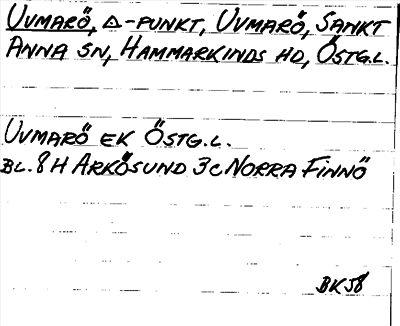 UVMARÖ, △-PUNKT, UVMARÖ, SANKT
ANNA SN, HAMMARKINDS HD, ÖSTG.L.
UVMARÖ EK ÖSTG.L.
BL. 8 H ARKÖSUND 3c NORRA FINNÖ
BK58